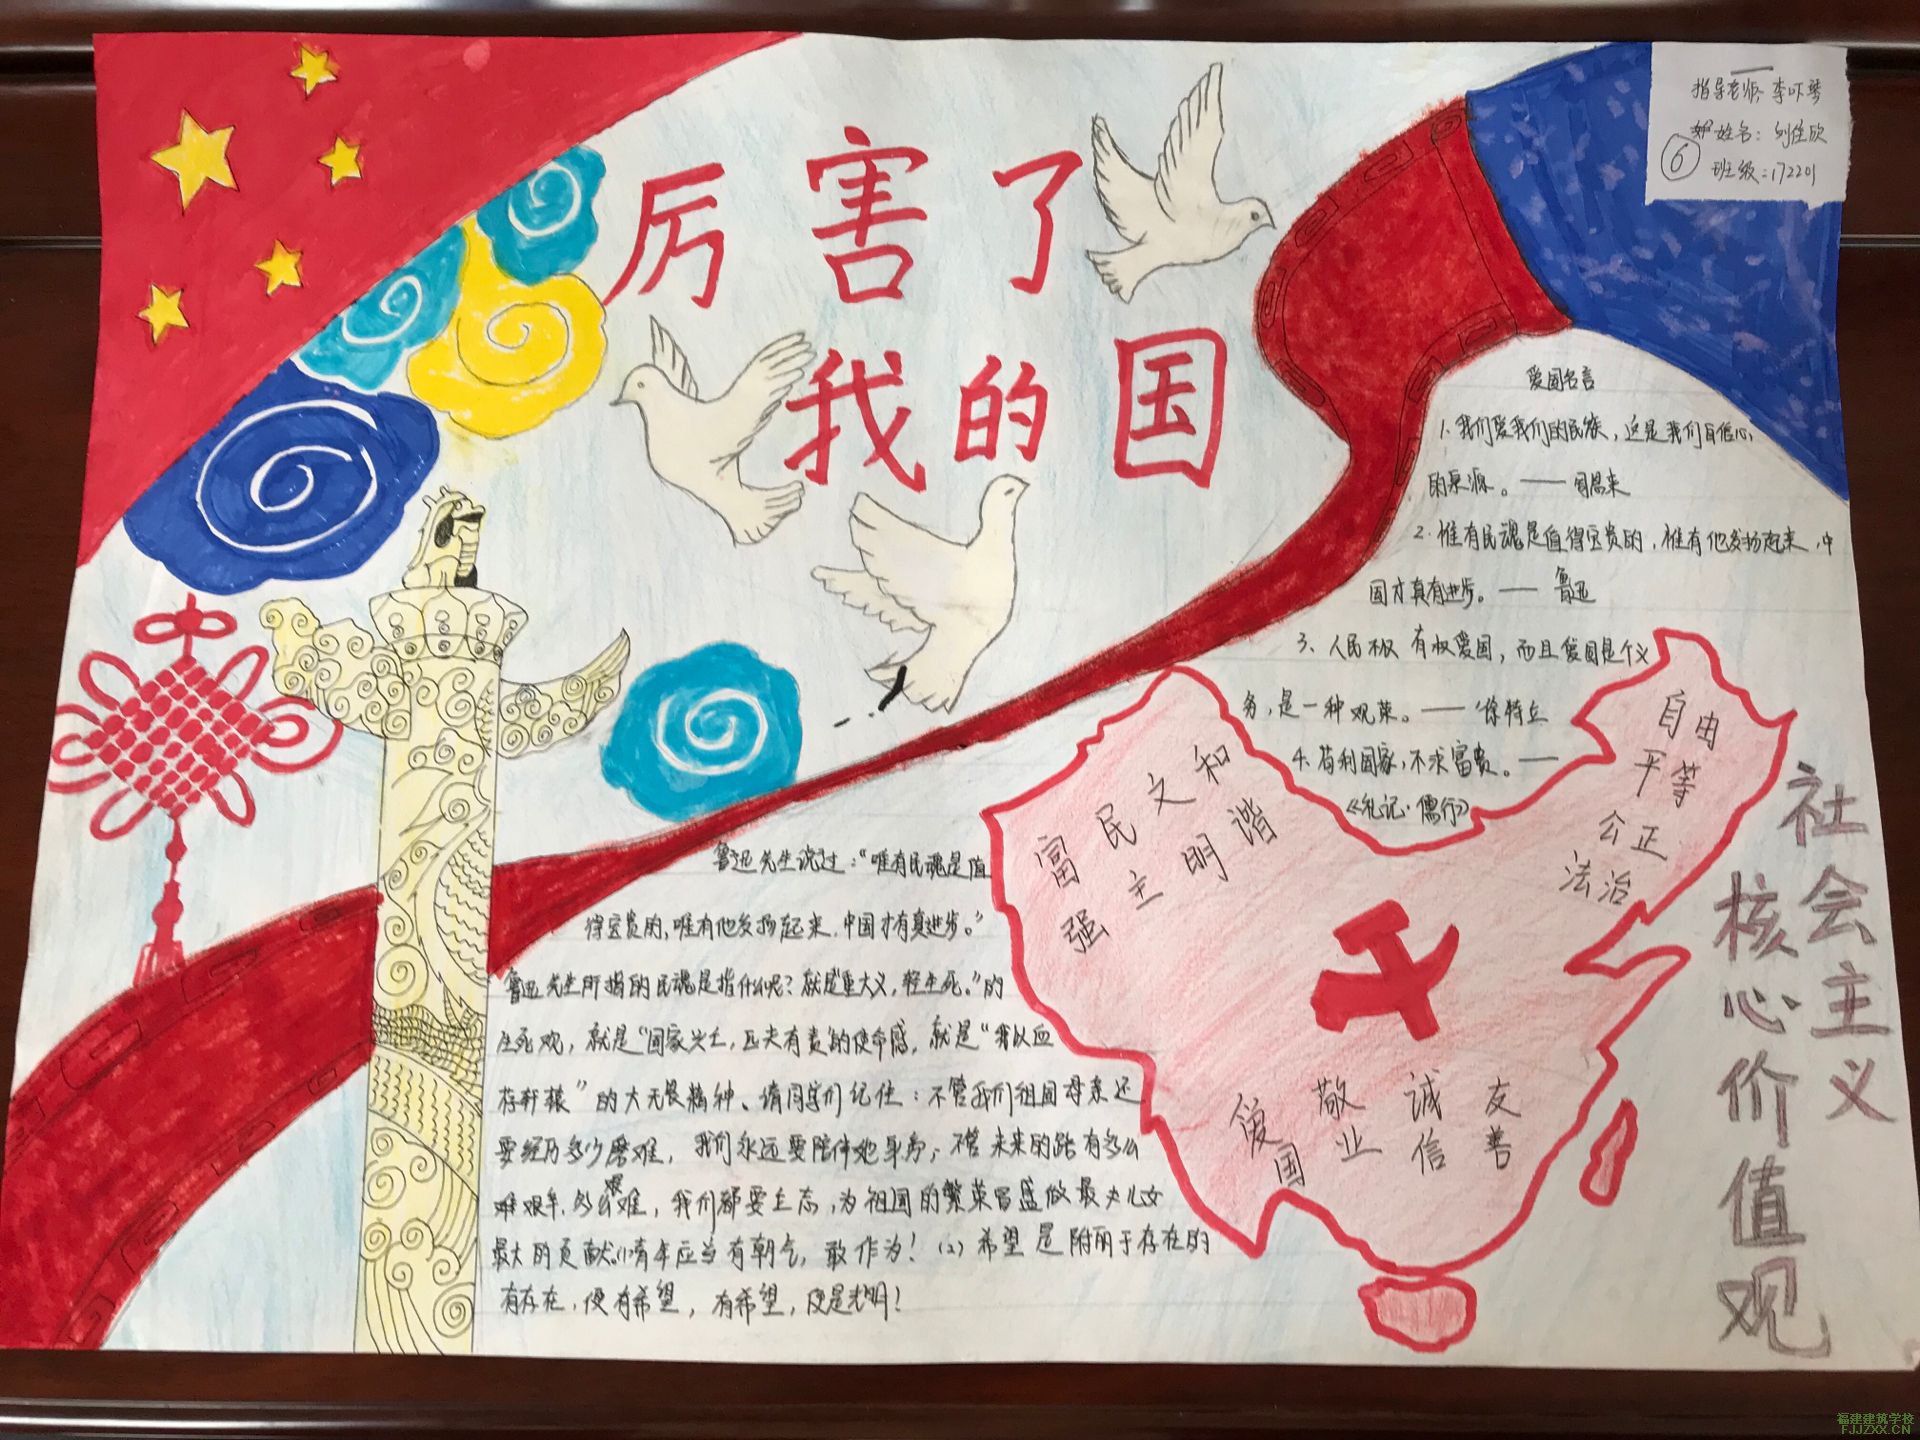 厉害了
我的国
指导老师:李吓琴
姓名:刘佳欣
⑥ 班级:172201
爱国名言
1.我们爱我们的民族,这是我们自信心
的泉源。——周恩来
2.惟有民魂是值得宝贵的,惟有他发扬起来,中
国才真有进步。——鲁迅
3、人民不仅有权爱国,而且爱国是个义
务,是一种观荣。——徐特立
4.苟利国家,不求富贵。——
《礼记·儒行》
鲁迅先生说过:“唯有民魂是值
得宝贵的,唯有他发扬起来,中国才有真进步。”
鲁迅先生所指的民魂是指什么呢?就是“重大义,轻生死。”的
生死观,就是“国家兴亡,匹夫有责”的使命感,就是“我以血
荐轩辕”的大无畏精神、请同学们记住:不管我们祖国母亲还
要经历多少磨难,我们永远要陪伴她身旁;不管未来的路有多么
难艰辛,多么艰难,我们都要立志,为祖国的繁荣昌盛做最大儿女
最大的贡献。(1)青年应当有朝气,敢作为!(2)希望是附丽于存在的
有存在,便有希望,有希望,便是光明!
富强 民主 文明 和谐
自由
平等
公正
法治
爱国 敬业 诚信 友善
社会主义
核心价值观
福建建筑学校
FJJZXX.CN